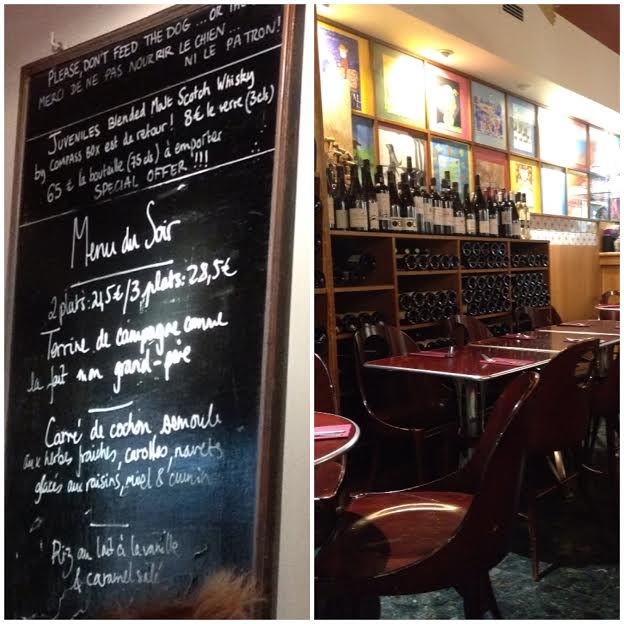 PLEASE, DON'T FEED THE DOG ... OR THE
MERCI DE NE PAS NOURRIR LE CHIEN ...
NI LE PATRON!
JUVENILES Blended Malt Scotch Whisky
by COMPASS BOX est de retour! 8€ le verre (3cls)
65€ la bouteille (75cls) à emporter
SPECIAL OFFER!!!
Menu du Soir
2 plats: 24,5€ / 3 plats: 28,5€
Terrine de campagne comme
la fait mon grand-père
Carré de cochon SEMOULE
aux herbes fraiches, carottes, navets
glacés aux raisins, miel & cumin
Riz au lait à la vanille
& caramel salé